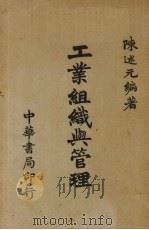 陳述元編著
工業組織與管理
中華書局印行